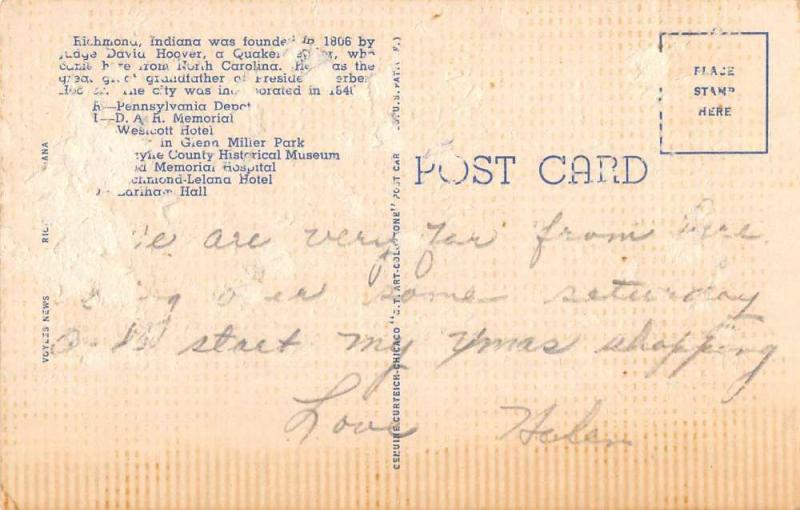 Richmond, Indiana was founded in 1806 by
Judge David Hoover, a Quaker settler, who
came here from North Carolina. He was the
great great grandfather of President Herbert
Hoover. The city was incorporated in 1840
R—Pennsylvania Depot
I—D. A. R. Memorial
Westcott Hotel
in Glenn Miller Park
Wayne County Historical Museum
Reid Memorial Hospital
Richmond-Leland Hotel
Earlham Hall
VOYLES NEWS RICHMOND, INDIANA
GENUINE CURTEICH-CHICAGO "C.T. ART-COLORTONE" POST CARD (REG. U.S. PAT. OFF.)
POST CARD
PLACE
STAMP
HERE
are very far from here
over some saturday
start my Xmas shopping
Love Helen